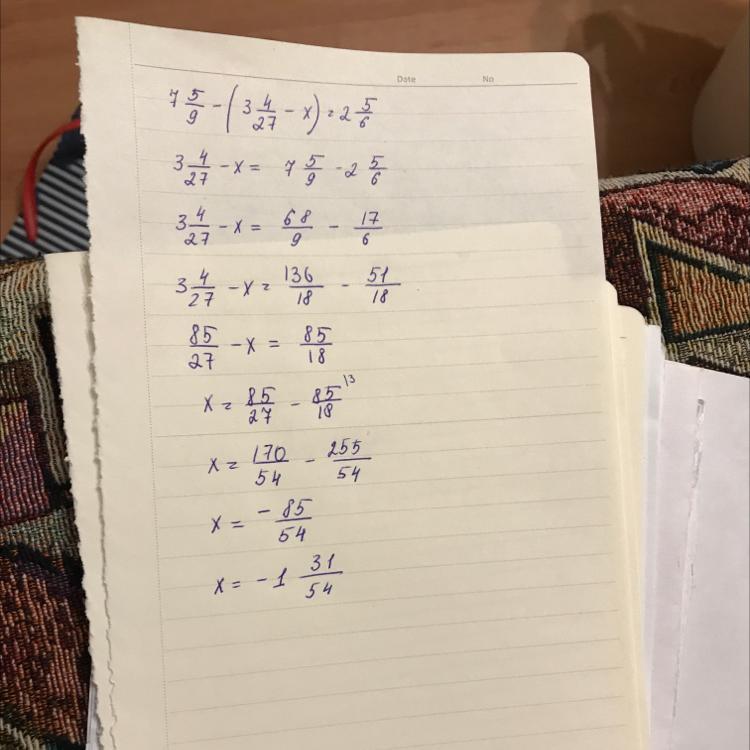 Date No
7 5/9 - (3 4/27 - x) = 2 5/6
3 4/27 - x = 7 5/9 - 2 5/6
3 4/27 - x = 68/9 - 17/6
3 4/27 - x = 136/18 - 51/18
85/27 - x = 85/18
x = 85/27 - 85/18 13
x = 170/54 - 255/54
x = - 85/54
x = -1 31/54